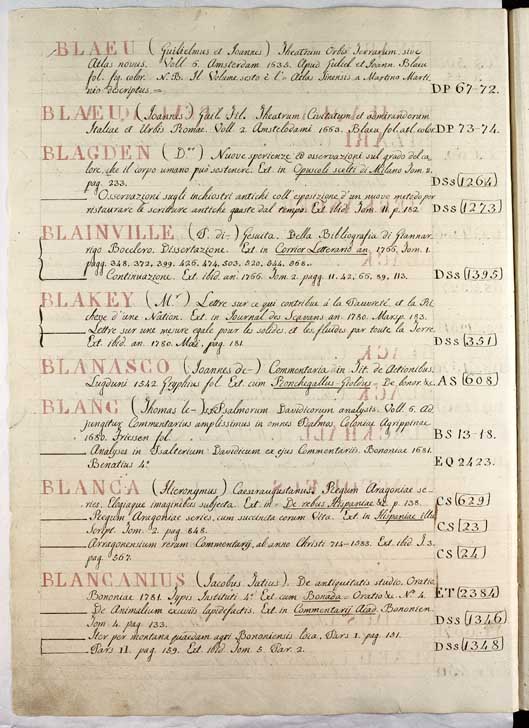 BLAEU (Guilielmus et Joannes) Theatrum Orbis Terrarum, sive
Atlas novus. Voll. 6. Amsterdam 1635. Apud Guliel. et Joann. Blaeu
fol. fig. color. N.B. Il Volume sesto è l'= Atlas Sinensis a Martino Marti
nio descriptus.= DP 67-72.
BLAEU (Joannes) Guil. Fil. Theatrum Civitatum et admirandorum
Italiae et Urbis Romae. Voll. 2. Amstelodami 1663. Blaeu fol. atl. color. DP 73-74.
BLAGDEN (D.or) Nuove sperienze ed osservazioni sul grado del ca
lore, che il corpo umano può sostenere. Ext. in Opuscoli scelti di Milano Tom. 2.
pag. 233. DSs (1264)
Osservazioni sugli inchiostri antichi coll'esposizione d'un nuovo metodo per
ristaurare le scritture antiche guaste dal tempo. Ext. ibid. Tom. 11. p. 152. DSs (1273)
BLAINVILLE (P. di-) Gesuita. Della Bibliografia di Giannar
rigo Boeclero. Dissertazione. Ext. in Corrier Letterario an. 1766. Tom. 1.
pagg. 348, 372, 399, 426, 474, 503, 520, 544, 568.
Continuazione. Ext. ibid. an. 1766. Tom. 2. pagg. 11, 42, 65, 89, 113. DSs (1395)
BLAKEY (M.r) Lettre sur ce qui contribue à la Pauvreté, et la Ri
chesse d'une Nation. Ext. in Journal des Sçavans an. 1780. Mars p. 183.
Lettre sur une mesure egale pour les solides, et les fluides par toute la Terre.
Ext. ibid. an. 1780. Mai. pag. 181. DSs (351)
BLANASCO (Joannes de-) Commentaria in Tit. de Actionibus.
Lugduni 1542. Gryphius fol. Ext. cum Ponchigallus-Gioldus- De bonor. &c. AS (608)
BLANC (Thomas le-) Psalmorum Davidicorum analysis. Voll. 6. Ad
jungitur Commentarius amplissimus in omnes Psalmos. Coloniae Agrippinae
1680. Friessen fol. BS 13-18.
Analyses in Psalterium Davidicum ex ejus Commentariis. Bononiae 1681.
Benatius 4.o EQ 2423.
BLANCA (Hieronymus) Caesaraugustanus. Regum Aragoniae se-
ries, Elogiaque imaginibus subjecta. Ext. in De rebus Hispaniae &c. p. 138. CS (629)
Regum Aragoniae series, cum succincta eorum Vita. Ext. in Hispaniae Illu
Script. Tom. 2. pag. 848. CS (23)
Arragonensium rerum Commentarij, ab anno Christi 714-1588. Ext. ibid. T. 3.
pag. 567. CS (24)
BLANCANIUS (Jacobus Tatius). De antiquitatis studio. Oratio.
Bononiae 1781. Typis Instituti 4.o Ext. cum Bonada- Oratio &c. N.o 4. ET (2384)
De Animalium exuviis lapidefactis. Ext. in Commentarij Acad. Bononien.
Tom. 4. pag. 133. DSs (1346)
Iter per montana quaedam agri Bononiensis loca. Pars 1. pag. 151.
Pars 11. pag. 159. Ext. ibid. Tom. 5. Par. 2. DSs (1348)